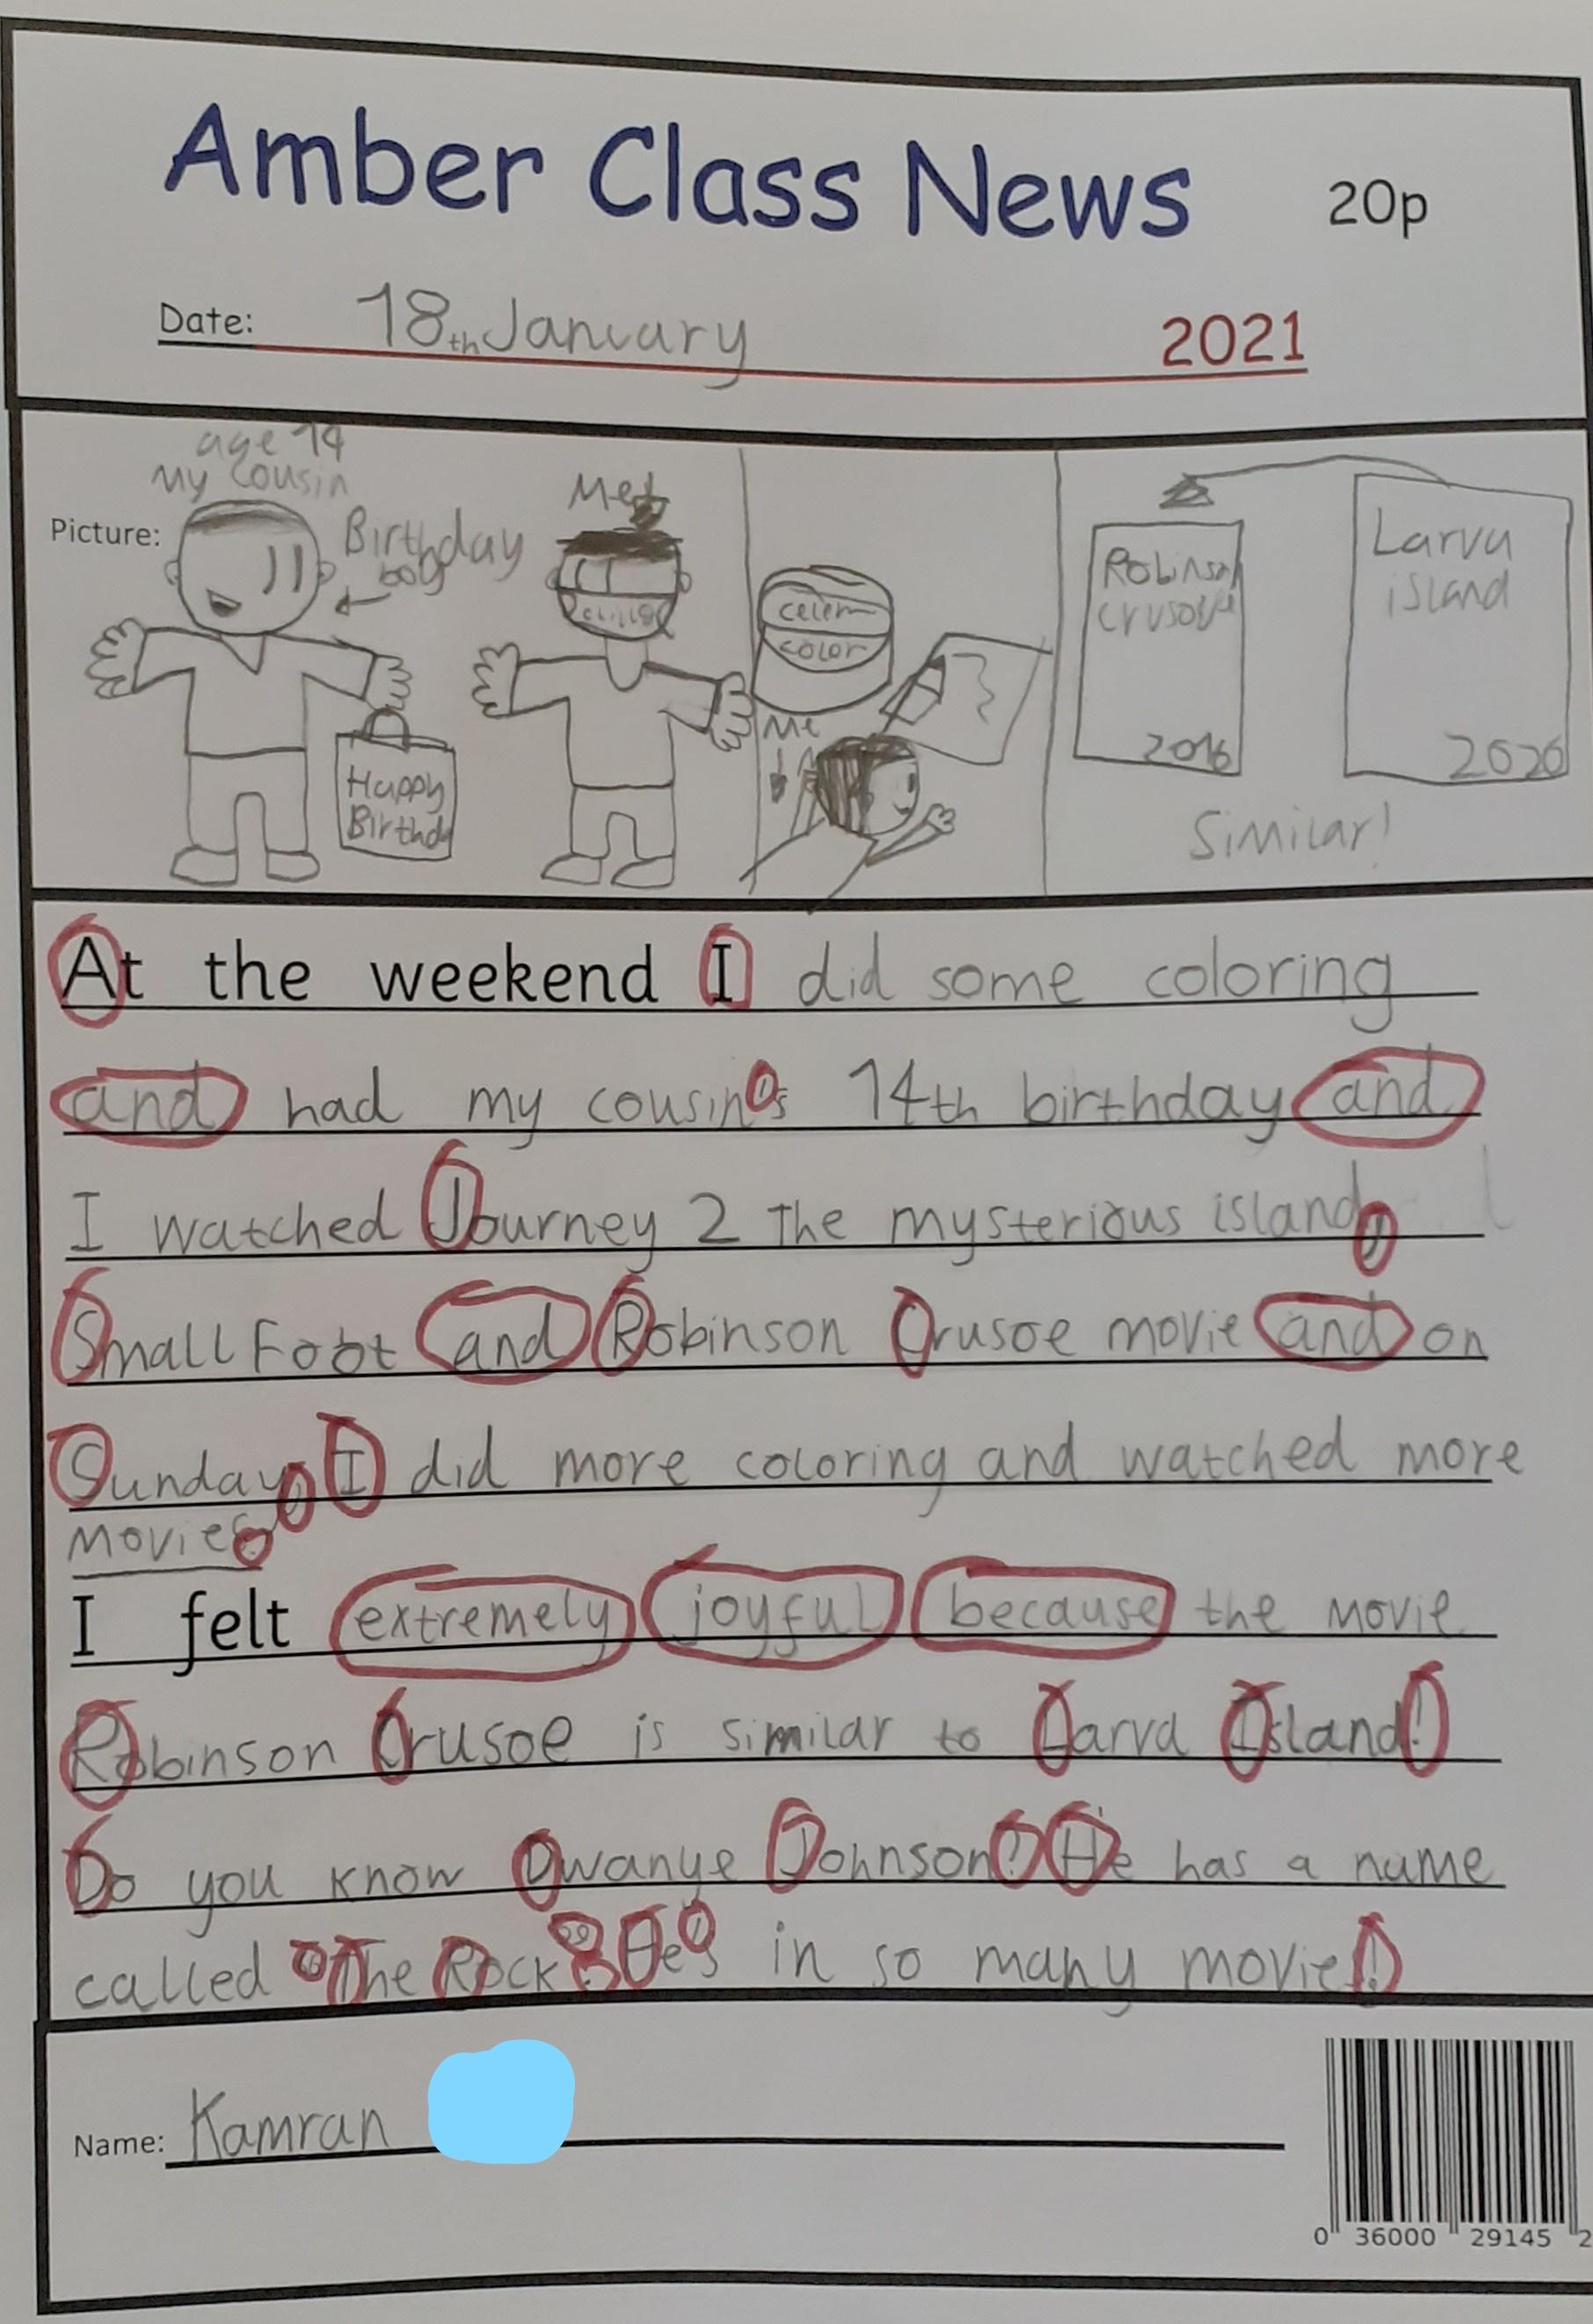 Amber Class News 20p
Date: 18th January 2021
age 14
My Cousin
Picture:
Birthday
boy
Me
Happy
Birthd
color
Me
Robinson
crusoe
2016
Larva
island
2020
Similar!
At the weekend I did some coloring
and had my cousin's 14th birthday and
I watched Journey 2 The mysterious island,
Small Foot and Robinson Crusoe movie and on
Sunday, I did more coloring and watched more
movies.
I felt extremely joyful because the movie
Robinson Crusoe is similar to Larva Island!
Do you know Dwanye Johnson? He has a name
called "The Rock". He's in so many movies!
Name: Kamran
0 36000 29145 2